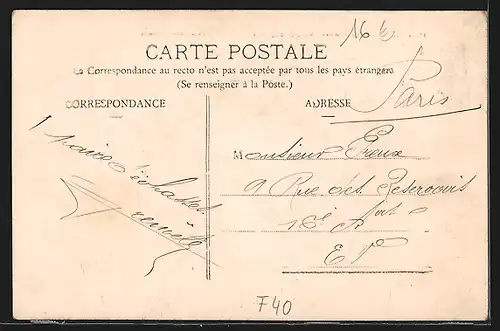 16 E
CARTE POSTALE
La Correspondance au recto n'est pas acceptée par tous les pays étrangers
(Se renseigner à la Poste.)
Paris
CORRESPONDANCE
ADRESSE
1 paire d'échasses
Monsieur Preux
9 Rue des Réservoirs
16e Art
E V
F40